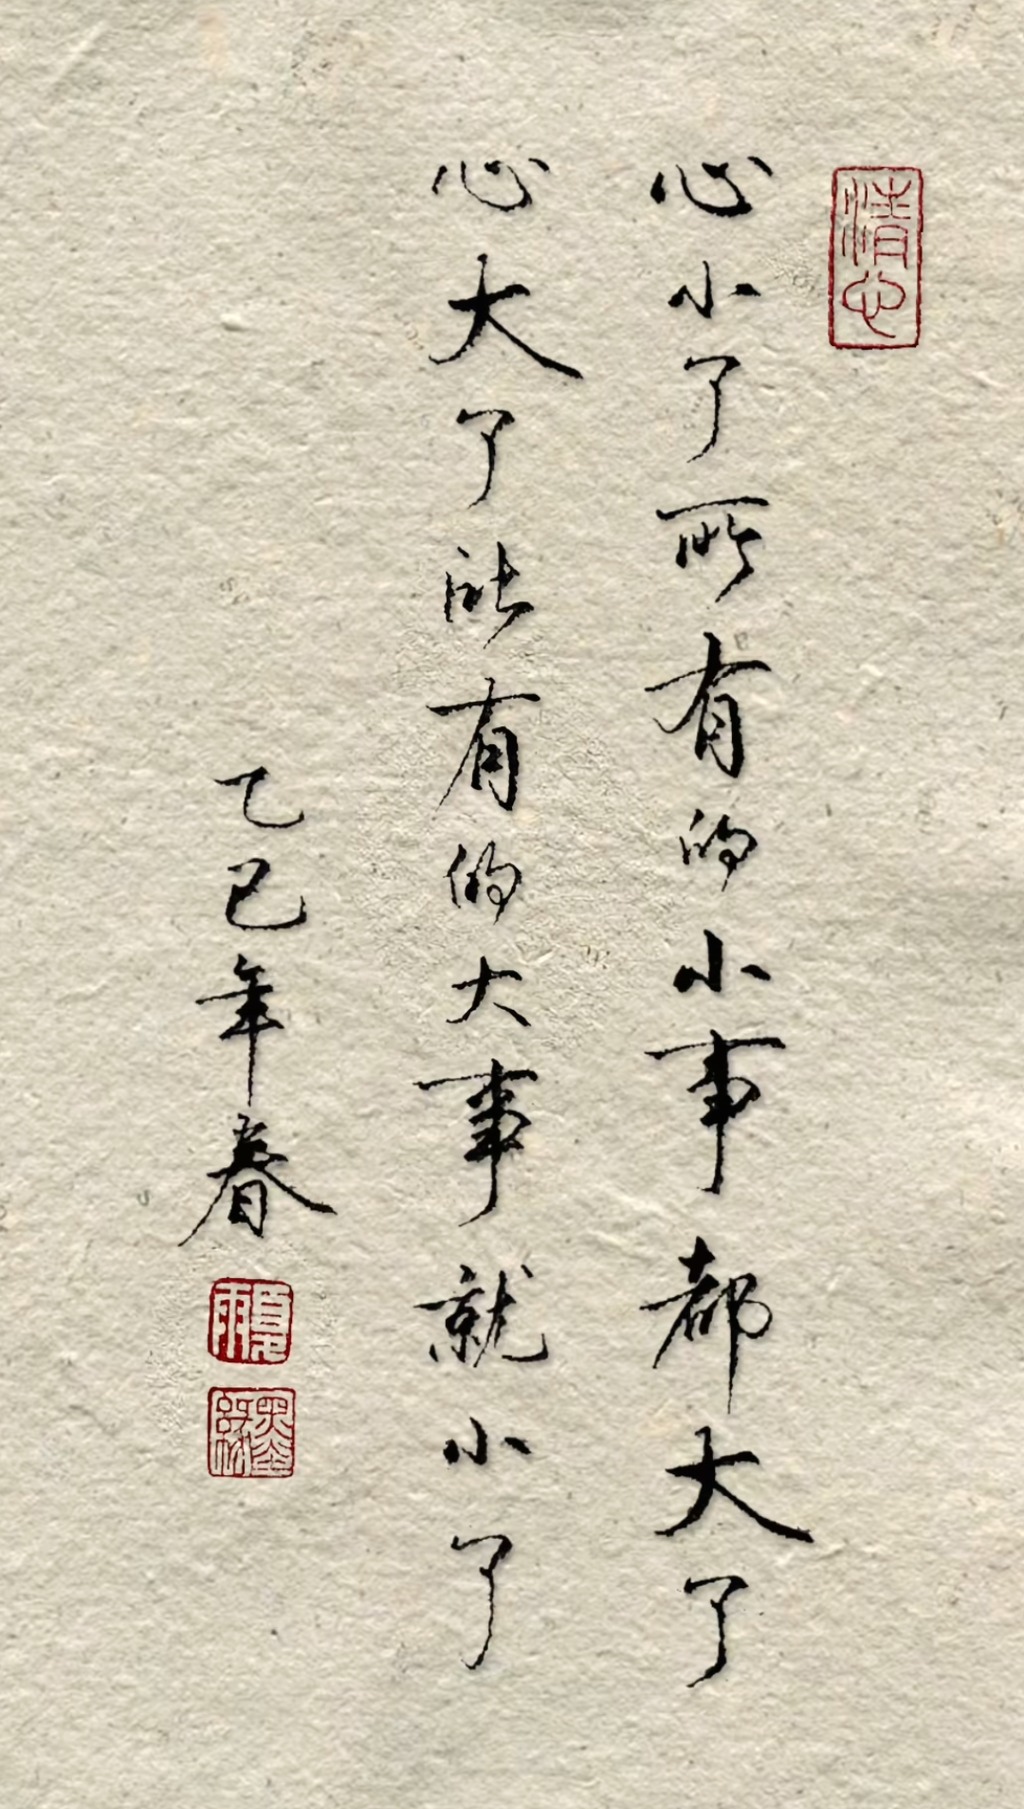 清心
心小了所有的小事都大了
心大了所有的大事就小了
乙巳年春
夏雨